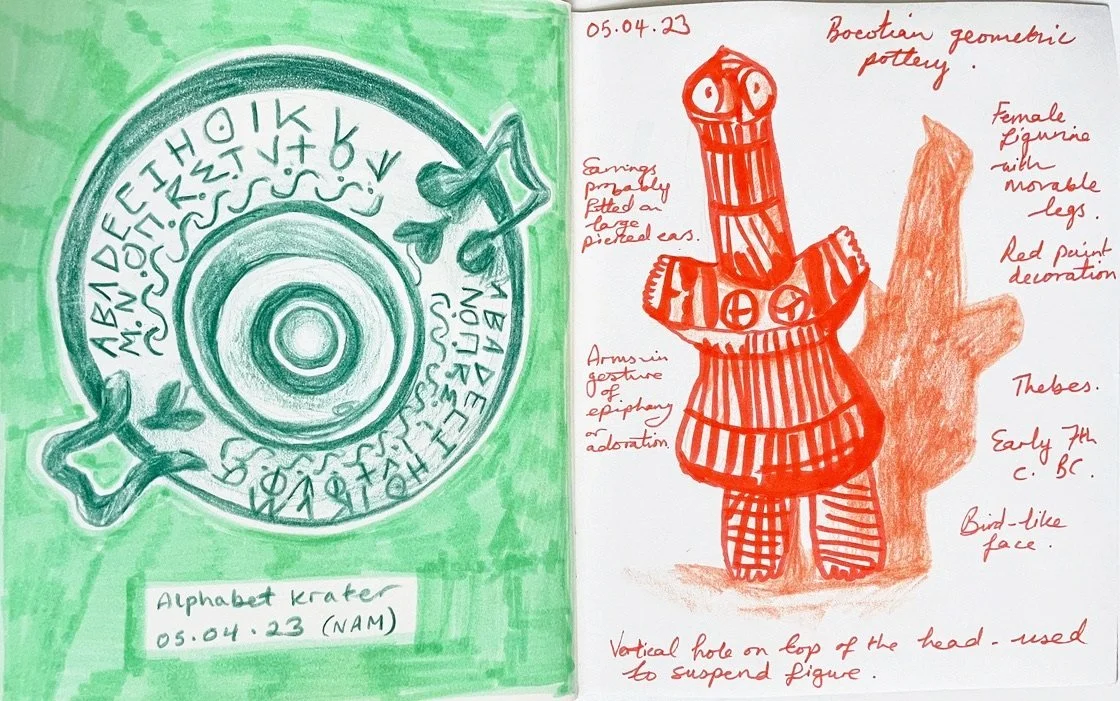 Alphabet krater
05.04.23 (NAM)
05.04.23
Boeotian geometric
pottery.
Earrings
probably
fitted on
large
pierced ears.
Arms in
gesture
of
epiphany
or
adoration.
Female
figurine
with
movable
legs.
Red paint
decoration
Thebes.
Early 7th
c. BC.
Bird-like
face.
Vertical hole on top of the head - used
to suspend figure.